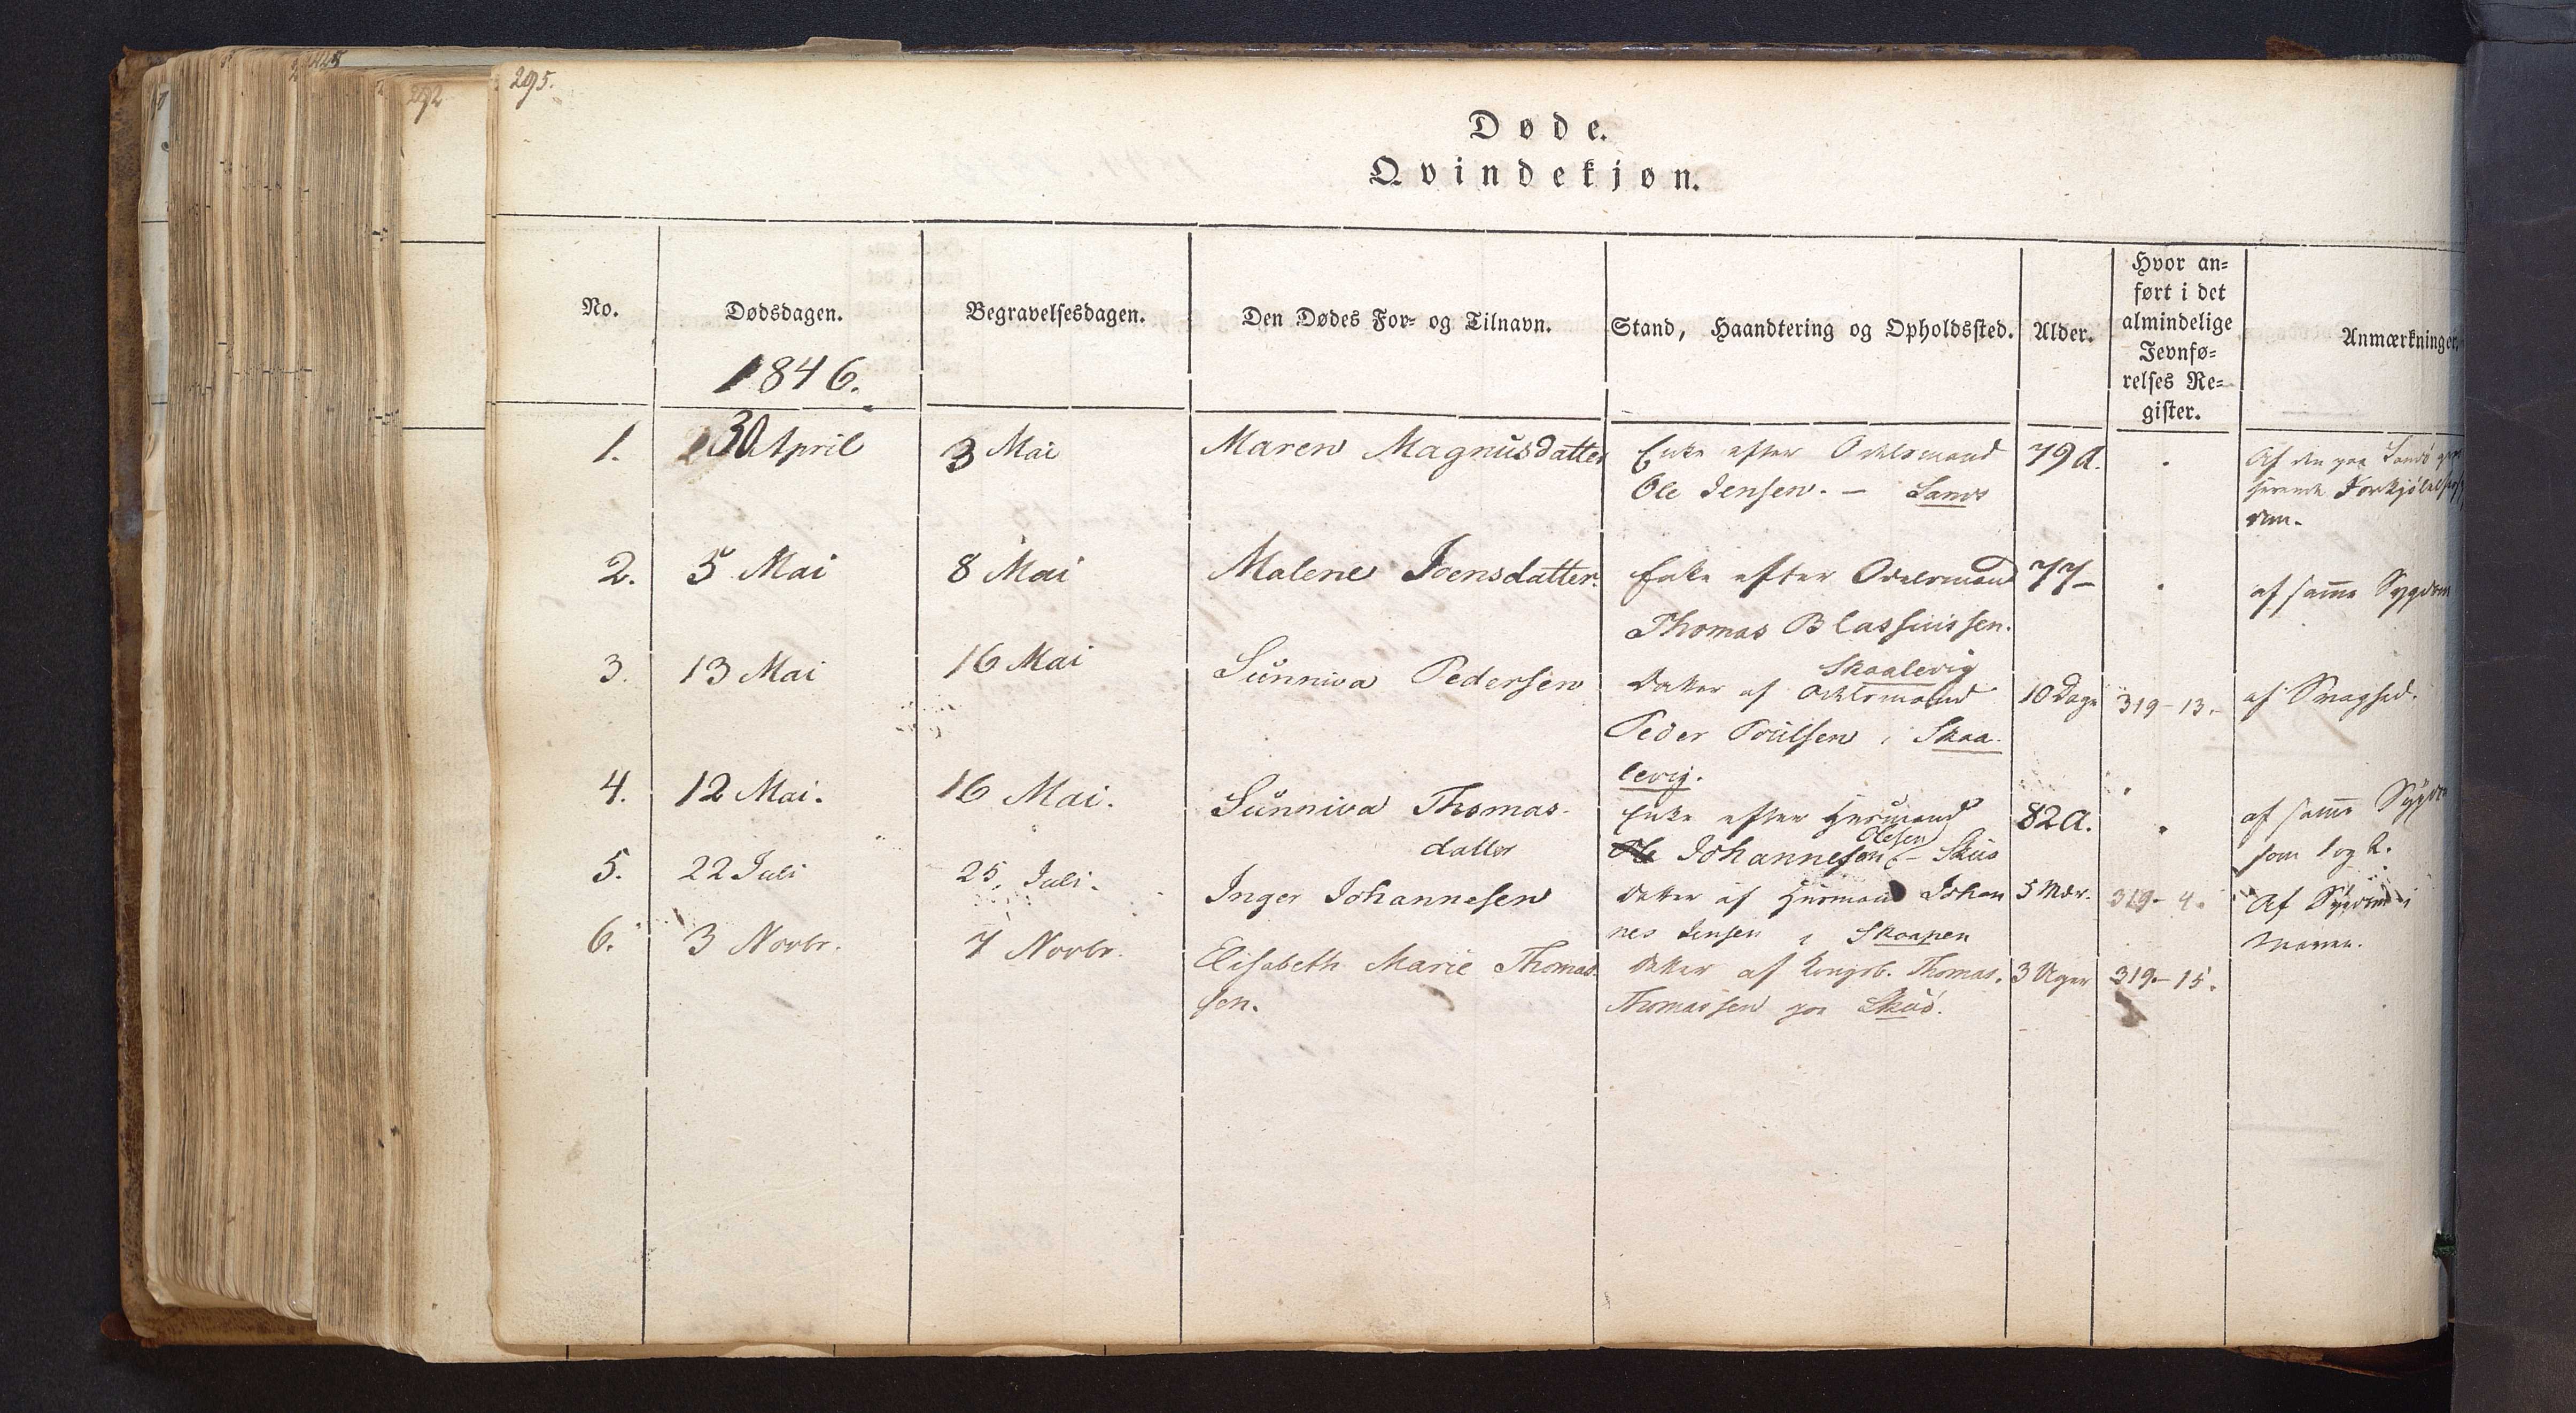 295.
292
Døde.
Qvindekjøn.
No.
Dødsdagen.
1846.
Begravelsesdagen.
Den Dødes For- og Tilnavn.
Stand, Haandtering og Opholdssted.
Alder.
Hvor an=
ført i det
almindelige
Jevnfø=
relses Re=
gister.
Anmærkninger.
1.
30 April
3 Mai
Maren Magnusdatter
Enke efter Odelsmand
Ole Jensen. – Sandø
79 A.
Af den paa Sandø
Forkjølelses
2.
5 Mai
8 Mai
Malene Joensdatter.
Enke efter Odelsmand
Thomas Blassiussen.
Skaalevig
77 –
af samme Sygdom
3.
13 Mai
16 Mai
Sunniva Pedersen
Datter af Odelsmand
Peder Poulsen i Skaa
levig.
10 Dage
319 – 13.
af Svaghed.
4.
12 Mai.
16 Mai.
Sunniva Thomas
datter
Enke efter Husmand
Johannes Olesen – Skuø
82 A.
af samme Sygdom
som 1 og 2.
5.
22 Juli
25. Juli.
Inger Johannesen
Datter af Husmand Johan
nes Jensen i Skaapen
5 Mdr.
319 – 4.
Af Sygdom i
Maven.
6.
3 Novbr.
7 Novbr.
Elisabeth Marie Thomas
sen.
Datter af Kongsb. Thomas
Thomassen paa Skuø.
3 Uger
319 – 15.